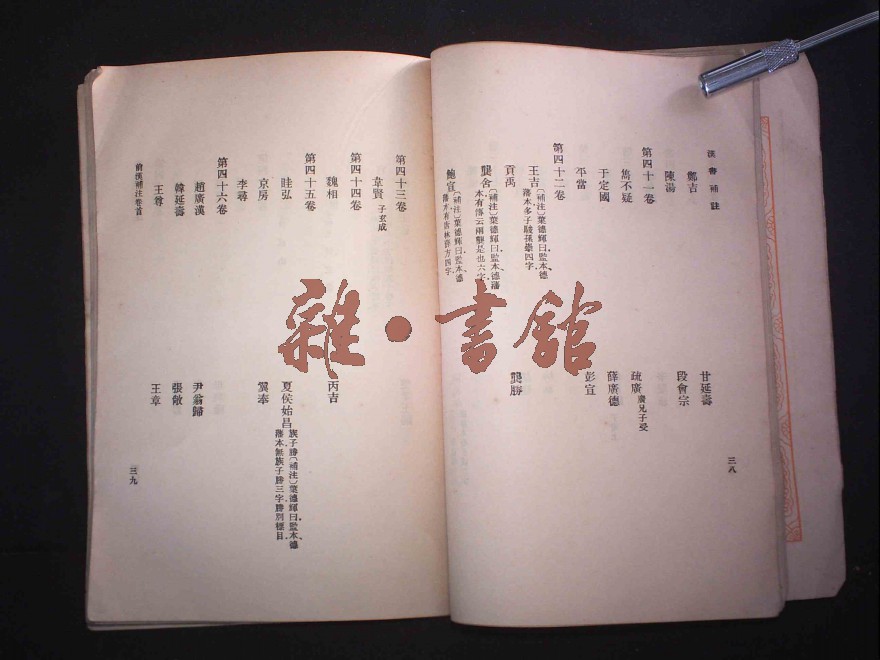 漢書補註
鄭吉
甘延壽
陳湯
段會宗
第四十一卷
雋不疑
疏廣 廣兄子受
于定國
薛廣德
平當
彭宣
第四十二卷
王吉〔補注〕葉德輝曰監本、德
藩本多子駿孫崇四字
貢禹
龔勝
龔舍〔補注〕葉德輝曰監本、德藩
本有傳云兩龔是也六字
鮑宣〔補注〕葉德輝曰監本、德
三八
第四十三卷
韋賢 子玄成
第四十四卷
魏相
丙吉
第四十五卷
眭弘
夏侯始昌 族子勝〔補注〕葉德輝曰、監本、德
藩本無族子勝三字勝別標目
京房
翼奉
李尋
第四十六卷
趙廣漢
尹翁歸
韓延壽
張敞
王尊
王章
前漢補注卷首
三九
雜·書館